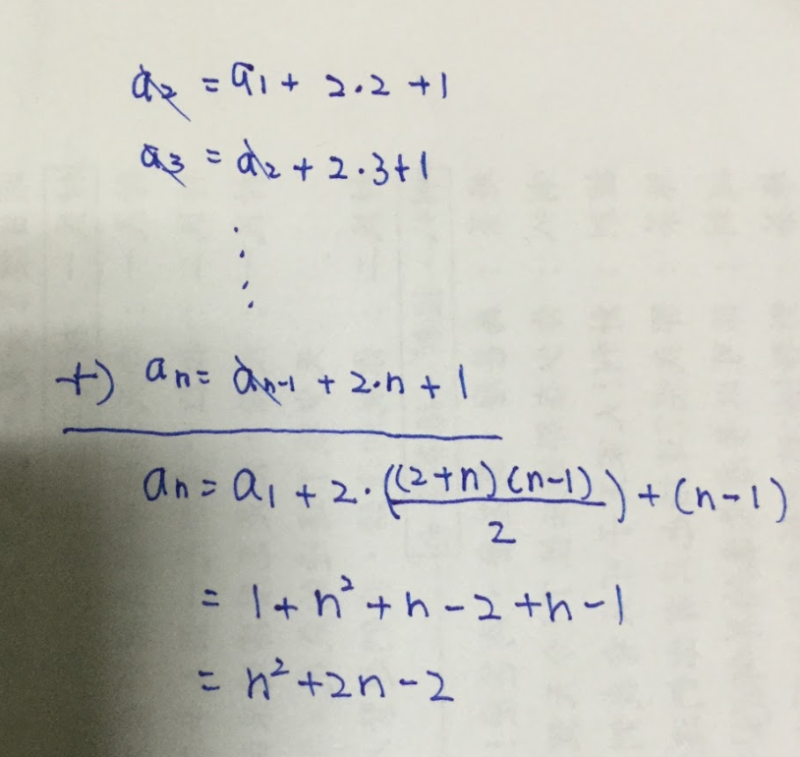 a₂ = a₁ + 2·2 + 1
a₃ = a₂ + 2·3 + 1
⋮
+) aₙ = aₙ₋₁ + 2·n + 1
aₙ = a₁ + 2·((2+n)(n-1)/2) + (n-1)
= 1 + n² + n - 2 + n - 1
= n² + 2n - 2